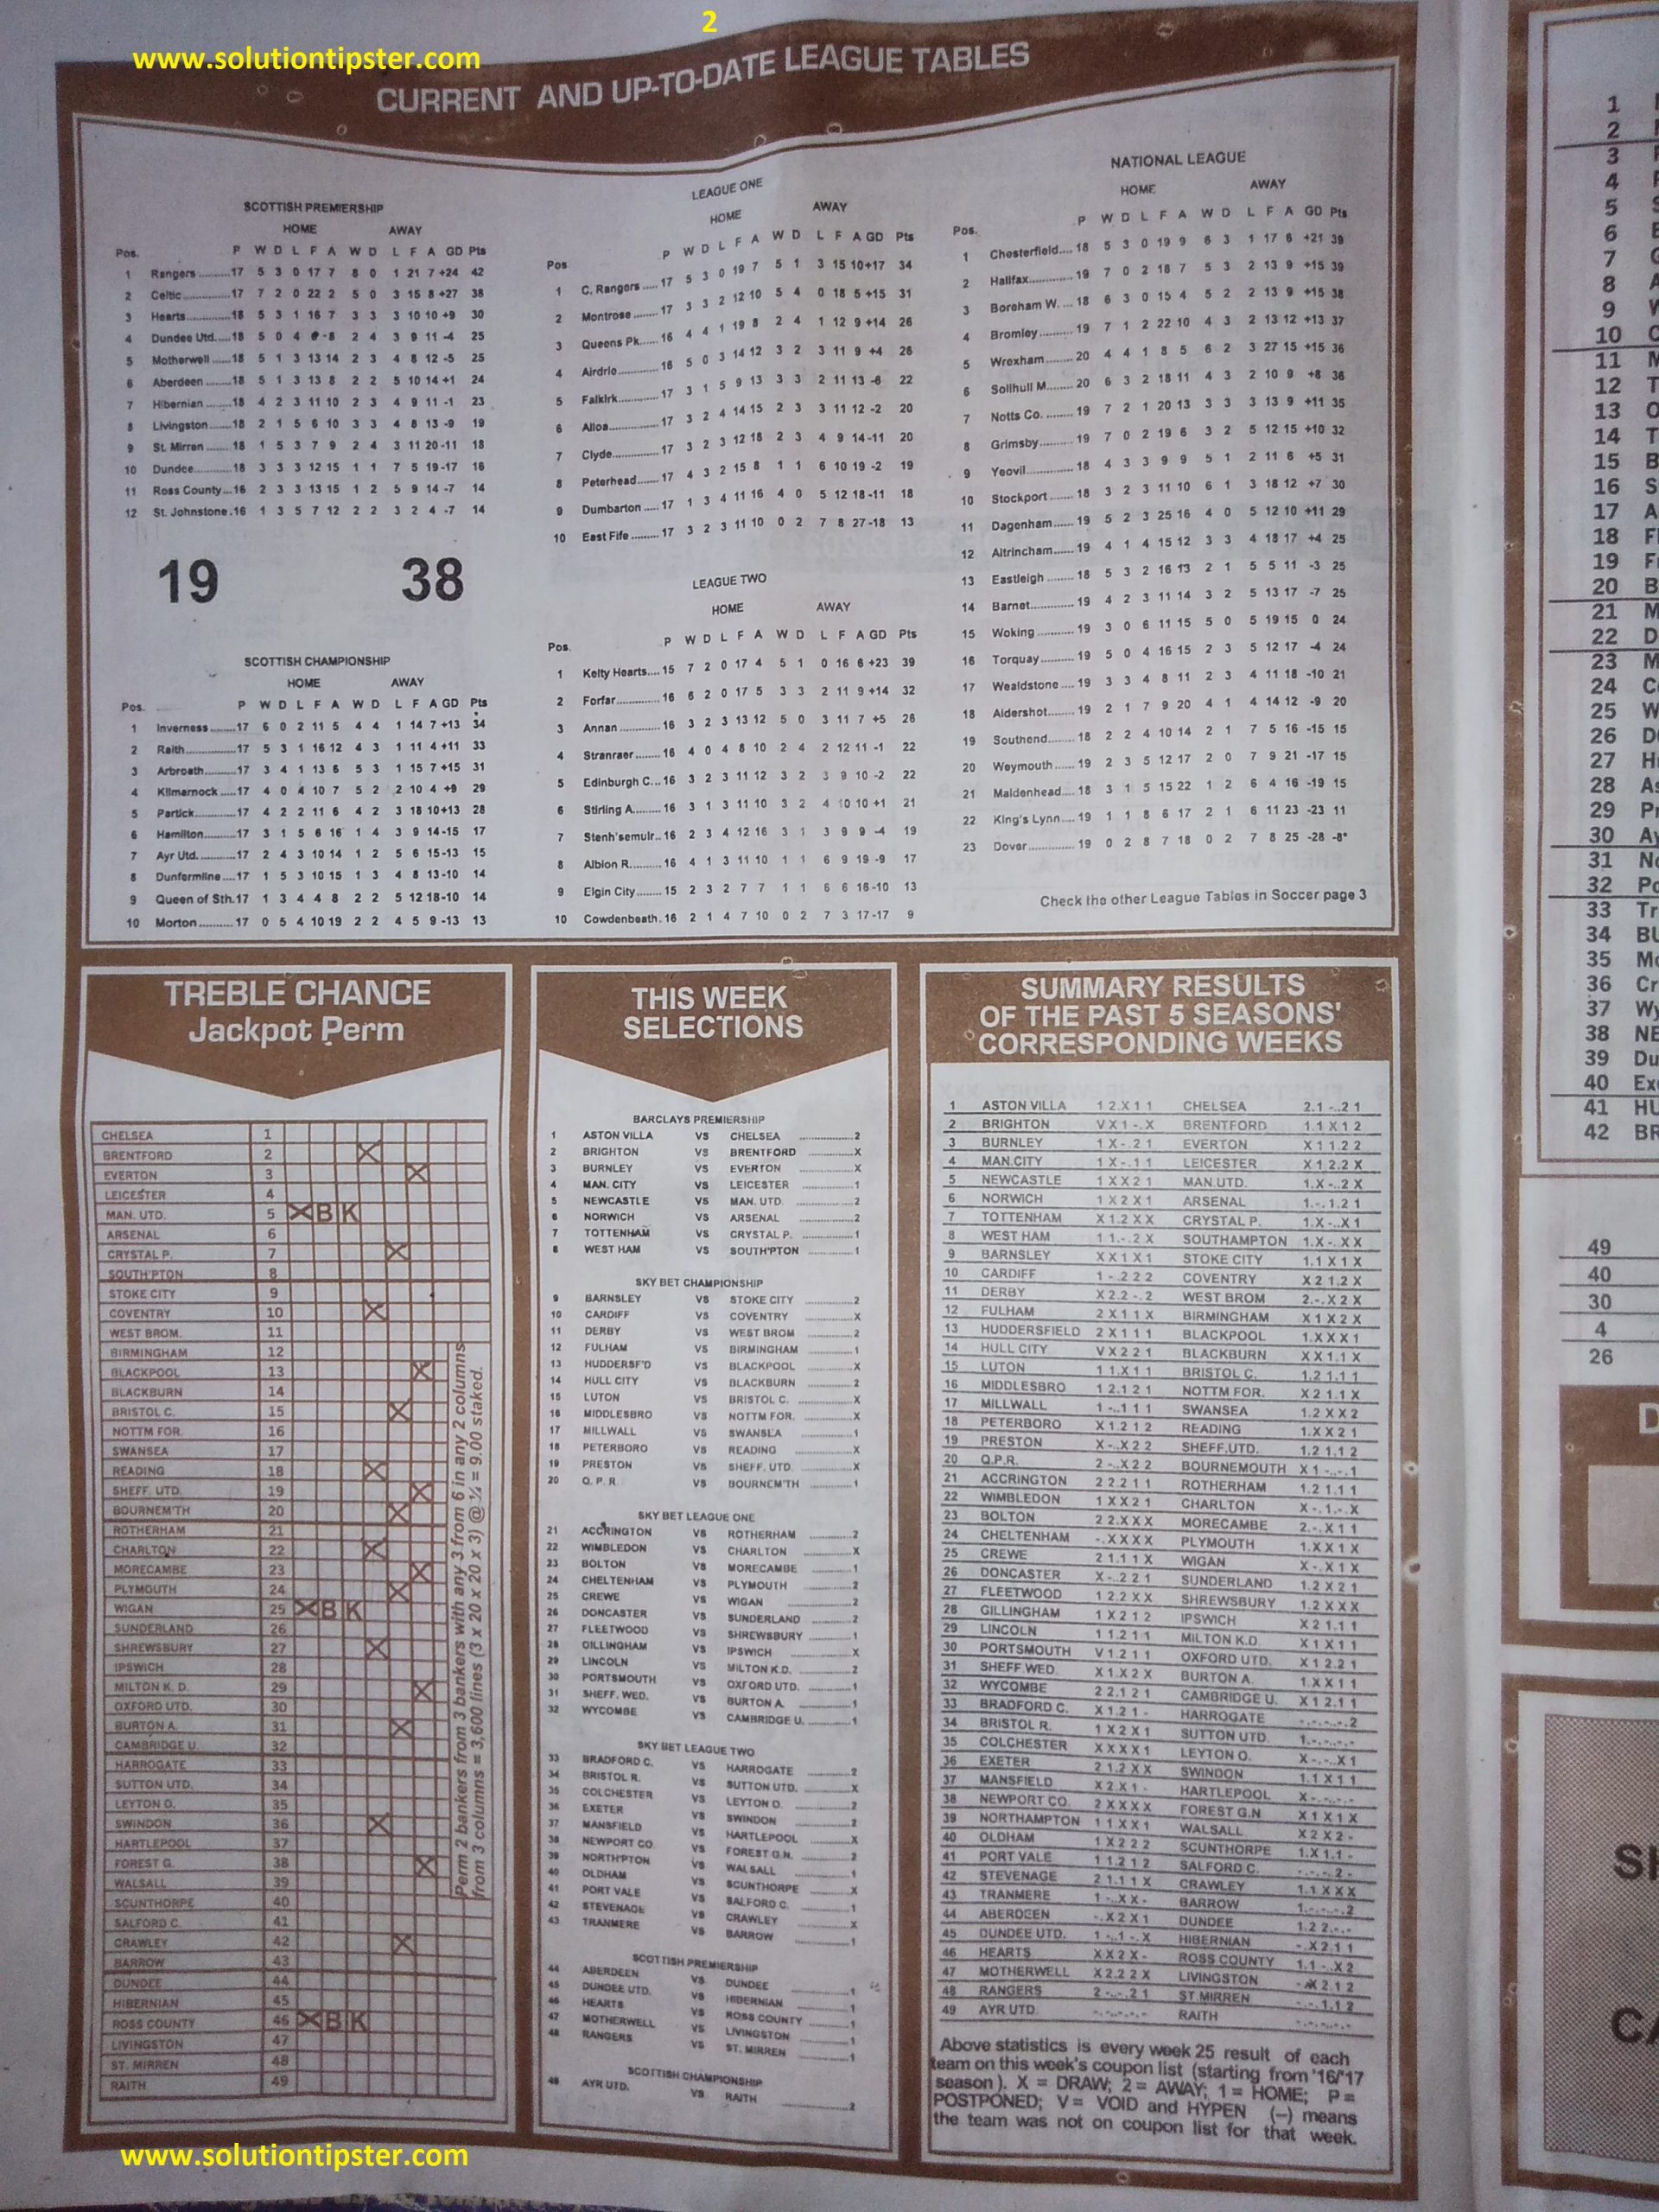 2
www.solutiontipster.com
CURRENT AND UP-TO-DATE LEAGUE TABLES
SCOTTISH PREMIERSHIP
HOME AWAY
Pos. P W D L F A W D L F A GD Pts
1 Rangers 17 5 3 0 17 7 8 0 1 21 7 +24 42
2 Celtic 17 7 2 0 22 2 5 0 3 15 8 +27 38
3 Hearts 18 5 3 1 16 7 3 3 3 10 10 +9 30
4 Dundee Utd. 18 5 0 4 8 2 4 3 9 11 -4 25
5 Motherwell 18 5 1 3 13 14 2 3 4 8 12 -5 25
6 Aberdeen 18 5 1 3 13 8 2 2 5 10 14 +1 24
7 Hibernian 18 4 2 3 11 10 2 3 4 9 11 -1 23
8 Livingston 18 2 1 5 6 10 3 3 4 8 13 -9 19
9 St. Mirren 18 1 5 3 7 9 2 4 3 11 20 -11 18
10 Dundee 18 3 3 3 12 15 1 1 7 5 19 -17 16
11 Ross County 16 2 3 3 13 15 1 2 5 9 14 -7 14
12 St. Johnstone 16 1 3 5 7 12 2 2 3 2 4 -7 14
19 38
SCOTTISH CHAMPIONSHIP
HOME AWAY
Pos. P W D L F A W D L F A GD Pts
1 Inverness 17 6 0 2 11 5 4 4 1 14 7 +13 34
2 Raith 17 5 3 1 16 12 4 3 1 11 4 +11 33
3 Arbroath 17 3 4 1 13 6 5 3 1 15 7 +15 31
4 Kilmarnock 17 4 0 4 10 7 5 2 2 10 4 +9 29
5 Partick 17 4 2 2 11 6 4 2 3 18 10 +13 28
6 Hamilton 17 3 1 5 6 16 1 4 3 9 14 -15 17
7 Ayr Utd. 17 2 4 3 10 14 1 2 5 6 15 -13 15
8 Dunfermline 17 1 5 3 10 15 1 3 4 8 13 -10 14
9 Queen of Sth. 17 1 3 4 4 8 2 2 5 12 18 -10 14
10 Morton 17 0 5 4 10 19 2 2 4 5 9 -13 13
LEAGUE ONE
HOME AWAY
Pos P W D L F A W D L F A GD Pts
1 C. Rangers 17 5 3 0 19 7 5 1 3 15 10 +17 34
2 Montrose 17 3 3 2 12 10 5 4 0 18 5 +15 31
3 Queens Pk. 16 4 4 1 19 8 2 4 1 12 9 +14 26
4 Airdrie 16 5 0 3 14 12 3 2 3 11 9 +4 26
5 Falkirk 17 3 1 5 9 13 3 3 2 11 13 -6 22
6 Alloa 17 3 2 4 14 15 2 3 3 11 12 -2 20
7 Clyde 17 3 2 3 12 18 2 3 4 9 14 -11 20
8 Peterhead 17 4 3 2 15 8 1 1 6 10 19 -2 19
9 Dumbarton 17 1 3 4 11 16 4 0 5 12 18 -11 18
10 East Fife 17 3 2 3 11 10 0 2 7 8 27 -18 13
LEAGUE TWO
HOME AWAY
Pos. P W D L F A W D L F A GD Pts
1 Kelty Hearts 15 7 2 0 17 4 5 1 0 16 6 +23 39
2 Forfar 16 6 2 0 17 5 3 3 2 11 9 +14 32
3 Annan 16 3 2 3 13 12 5 0 3 11 7 +5 26
4 Stranraer 16 4 0 4 8 10 2 4 2 12 11 -1 22
5 Edinburgh C. 16 3 2 3 11 12 3 2 3 9 10 -2 22
6 Stirling A. 16 3 1 3 11 10 3 2 4 10 10 +1 21
7 Stenh'semuir 16 2 3 4 12 16 3 1 3 9 9 -4 19
8 Albion R. 16 4 1 3 11 10 1 1 6 9 19 -9 17
9 Elgin City 15 2 3 2 7 7 1 1 6 6 16 -10 13
10 Cowdenbeath 16 2 1 4 7 10 0 2 7 3 17 -17 9
NATIONAL LEAGUE
HOME AWAY
Pos. P W D L F A W D L F A GD Pts
1 Chesterfield 18 5 3 0 19 9 6 3 1 17 6 +21 39
2 Halifax 19 7 0 2 18 7 5 3 2 13 9 +15 39
3 Boreham W. 18 6 3 0 15 4 5 2 2 13 9 +15 38
4 Bromley 19 7 1 2 22 10 4 3 2 13 12 +13 37
5 Wrexham 20 4 4 1 8 5 6 2 3 27 15 +15 36
6 Solihull M. 20 6 3 2 18 11 4 3 2 10 9 +8 36
7 Notts Co. 19 7 2 1 20 13 3 3 3 13 9 +11 35
8 Grimsby 19 7 0 2 19 6 3 2 5 12 15 +10 32
9 Yeovil 18 4 3 3 9 9 5 1 2 11 6 +5 31
10 Stockport 18 3 2 3 11 10 6 1 3 18 12 +7 30
11 Dagenham 19 5 2 3 25 16 4 0 5 12 10 +11 29
12 Altrincham 19 4 1 4 15 12 3 3 4 18 17 +4 25
13 Eastleigh 18 5 3 2 16 13 2 1 5 5 11 -3 25
14 Barnet 19 4 2 3 11 14 3 2 5 13 17 -7 25
15 Woking 19 3 0 6 11 15 5 0 5 19 15 0 24
16 Torquay 19 5 0 4 16 15 2 3 5 12 17 -4 24
17 Wealdstone 19 3 3 4 8 11 2 3 4 11 18 -10 21
18 Aldershot 19 2 1 7 9 20 4 1 4 14 12 -9 20
19 Southend 18 2 2 4 10 14 2 1 7 5 16 -15 15
20 Weymouth 19 2 3 5 12 17 2 0 7 9 21 -17 15
21 Maidenhead 18 3 1 5 15 22 1 2 6 4 16 -19 15
22 King's Lynn 19 1 1 8 6 17 2 1 6 11 23 -23 11
23 Dover 19 0 2 8 7 18 0 2 7 8 25 -28 -8*
Check the other League Tables in Soccer page 3
TREBLE CHANCE
Jackpot Perm
CHELSEA 1
BRENTFORD 2 X
EVERTON 3 X
LEICESTER 4
MAN. UTD. 5 X B K
ARSENAL 6
CRYSTAL P. 7 X
SOUTH'PTON 8
STOKE CITY 9
COVENTRY 10 X
WEST BROM. 11
BIRMINGHAM 12
BLACKPOOL 13 X
BLACKBURN 14
BRISTOL C. 15 X
NOTTM FOR. 16
SWANSEA 17
READING 18 X
SHEFF. UTD. 19 X
BOURNEM'TH 20 X
ROTHERHAM 21
CHARLTON 22 X
MORECAMBE 23 X
PLYMOUTH 24 X
WIGAN 25 X B K
SUNDERLAND 26
SHREWSBURY 27 X
IPSWICH 28
MILTON K. D. 29 X
OXFORD UTD. 30
BURTON A. 31 X
CAMBRIDGE U. 32
HARROGATE 33
SUTTON UTD. 34
LEYTON O. 35
SWINDON 36 X
HARTLEPOOL 37
FOREST G. 38 X
WALSALL 39
SCUNTHORPE 40
SALFORD C. 41
CRAWLEY 42 X
BARROW 43
DUNDEE 44
HIBERNIAN 45
ROSS COUNTY 46 X B K
LIVINGSTON 47
ST. MIRREN 48
RAITH 49
Perm 2 bankers from 3 bankers with any 3 from 6 in any 2 columns
from 3 columns = 3,600 lines (3 x 20 x 20 x 3) @ ¼ = 9.00 staked.
THIS WEEK
SELECTIONS
BARCLAYS PREMIERSHIP
1 ASTON VILLA VS CHELSEA 2
2 BRIGHTON VS BRENTFORD X
3 BURNLEY VS EVERTON X
4 MAN. CITY VS LEICESTER 1
5 NEWCASTLE VS MAN. UTD. 2
6 NORWICH VS ARSENAL 2
7 TOTTENHAM VS CRYSTAL P. 1
8 WEST HAM VS SOUTH'PTON 1
SKY BET CHAMPIONSHIP
9 BARNSLEY VS STOKE CITY 2
10 CARDIFF VS COVENTRY X
11 DERBY VS WEST BROM 2
12 FULHAM VS BIRMINGHAM 1
13 HUDDERSF'D VS BLACKPOOL X
14 HULL CITY VS BLACKBURN 2
15 LUTON VS BRISTOL C. X
16 MIDDLESBRO VS NOTTM FOR. X
17 MILLWALL VS SWANSEA 1
18 PETERBORO VS READING X
19 PRESTON VS SHEFF. UTD. X
20 Q. P. R. VS BOURNEM'TH 1
SKY BET LEAGUE ONE
21 ACCRINGTON VS ROTHERHAM 2
22 WIMBLEDON VS CHARLTON X
23 BOLTON VS MORECAMBE 1
24 CHELTENHAM VS PLYMOUTH 2
25 CREWE VS WIGAN 2
26 DONCASTER VS SUNDERLAND 2
27 FLEETWOOD VS SHREWSBURY 1
28 GILLINGHAM VS IPSWICH X
29 LINCOLN VS MILTON K.D. 2
30 PORTSMOUTH VS OXFORD UTD. 1
31 SHEFF. WED. VS BURTON A. 1
32 WYCOMBE VS CAMBRIDGE U. 1
SKY BET LEAGUE TWO
33 BRADFORD C. VS HARROGATE 2
34 BRISTOL R. VS SUTTON UTD. X
35 COLCHESTER VS LEYTON O. 2
36 EXETER VS SWINDON 2
37 MANSFIELD VS HARTLEPOOL X
38 NEWPORT CO. VS FOREST G.N. 2
39 NORTH'PTON VS WALSALL 1
40 OLDHAM VS SCUNTHORPE X
41 PORT VALE VS SALFORD C. 1
42 STEVENAGE VS CRAWLEY X
43 TRANMERE VS BARROW 1
SCOTTISH PREMIERSHIP
44 ABERDEEN VS DUNDEE 1
45 DUNDEE UTD. VS HIBERNIAN 1
46 HEARTS VS ROSS COUNTY 1
47 MOTHERWELL VS LIVINGSTON 1
48 RANGERS VS ST. MIRREN 1
SCOTTISH CHAMPIONSHIP
49 AYR UTD. VS RAITH 2
SUMMARY RESULTS
OF THE PAST 5 SEASONS'
CORRESPONDING WEEKS
1 ASTON VILLA 1 2.X 1 1 CHELSEA 2.1 -..2 1
2 BRIGHTON V X 1 -.X BRENTFORD 1.1 X 1 2
3 BURNLEY 1 X -.2 1 EVERTON X 1 1.2 2
4 MAN.CITY 1 X -.1 1 LEICESTER X 1 2.2 X
5 NEWCASTLE 1 X X 2 1 MAN.UTD. 1.X -..2 X
6 NORWICH 1 X 2 X 1 ARSENAL 1.-.1.2 1
7 TOTTENHAM X 1.2 X X CRYSTAL P. 1.X -..X 1
8 WEST HAM 1 1.-.2 X SOUTHAMPTON 1.X -..X X
9 BARNSLEY X X 1 X 1 STOKE CITY 1.1 X 1 X
10 CARDIFF 1 -.2 2 2 COVENTRY X 2 1.2 X
11 DERBY X 2.2 -.2 WEST BROM 2.-.X 2 X
12 FULHAM 2 X 1 1 X BIRMINGHAM X 1 X 2 X
13 HUDDERSFIELD 2 X 1 1 1 BLACKPOOL 1.X X X 1
14 HULL CITY V X 2 2 1 BLACKBURN X X 1.1 X
15 LUTON 1 1.X 1 1 BRISTOL C. 1.2 1.1 1
16 MIDDLESBRO 1 2.1 2 1 NOTTM FOR. X 2 1.1 X
17 MILLWALL 1 -..1 1 1 SWANSEA 1.2 X X 2
18 PETERBORO X 1 2 1 2 READING 1.X X 2 1
19 PRESTON X -.X 2 2 SHEFF.UTD. 1.2 1.1 2
20 Q.P.R. 2 -.X 2 2 BOURNEMOUTH X 1 -..-.1
21 ACCRINGTON 2 2 2 1 1 ROTHERHAM 1.2 1.1 1
22 WIMBLEDON 1 X X 2 1 CHARLTON X -.1.-.X
23 BOLTON 2 2.X X X MORECAMBE 2.-.X 1 1
24 CHELTENHAM -.X X X X PLYMOUTH 1.X X 1 X
25 CREWE 2 1.1 1 X WIGAN X -.X 1 X
26 DONCASTER X -..2 2 1 SUNDERLAND 1.2 X 2 1
27 FLEETWOOD 1 2.2 X X SHREWSBURY 1.2 X X X
28 GILLINGHAM 1 X 2 1 2 IPSWICH X 2 1.1 1
29 LINCOLN 1 1.2 1 1 MILTON K.D. X 1 X 1 1
30 PORTSMOUTH V 1.2 1 1 OXFORD UTD. X 1 2.2 1
31 SHEFF WED. X 1.X 2 X BURTON A. 1.X X 1 1
32 WYCOMBE 2 2.1 2 1 CAMBRIDGE U. X 1 2.1 1
33 BRADFORD C. X 1.2 1 - HARROGATE -.-.-.-.2
34 BRISTOL R. 1 X 2 X 1 SUTTON UTD. 1.-.-.-.-
35 COLCHESTER X X X X 1 LEYTON O. X -.-..X 1
36 EXETER 2 1.2 X X SWINDON 1.1 X 1 1
37 MANSFIELD X 2.X 1 - HARTLEPOOL X -.-.-.-
38 NEWPORT CO. 2 X X X X FOREST G.N X 1 X 1 X
39 NORTHAMPTON 1 1.X X 1 WALSALL X 2 X 2 -
40 OLDHAM 1 X 2 2 2 SCUNTHORPE 1.X 1.1 -
41 PORT VALE 1 1.2 1 2 SALFORD C. -.-.-.2 -
42 STEVENAGE 2 1.1 1 X CRAWLEY 1.1 X X X
43 TRANMERE 1 -..X X - BARROW 1.-.-.-.2
44 ABERDEEN -.X 2 X 1 DUNDEE 1.2 2.-.-
45 DUNDEE UTD. 1 -..1 -.X HIBERNIAN -.X 2.1 1
46 HEARTS X X 2 X - ROSS COUNTY 1.1 -..X 2
47 MOTHERWELL X 2.2 2 X LIVINGSTON X 2 1 2
48 RANGERS 2 -.-.2 1 ST.MIRREN -.-.1.1 2
49 AYR UTD. -.-.-.-.- RAITH -.-.-.-.-
Above statistics is every week 25 result of each
team on this week's coupon list (starting from '16/'17
season). X = DRAW; 2 = AWAY; 1 = HOME; P =
POSTPONED; V = VOID and HYPEN (–) means
the team was not on coupon list for that week.
www.solutiontipster.com
1
2
3
4
5
6
7
8
9
10
11
12
13
14
15
16
17
18
19
20
21
22
23
24
25
26
27
28
29
30
31
32
33
34
35
36
37
38
39
40
41
42
49
40
30
4
26